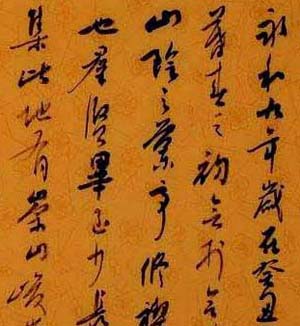 永和九年歲在癸丑
暮春之初會於會
山陰之蘭亭修禊
也群賢畢至少長
集此地有崇山峻